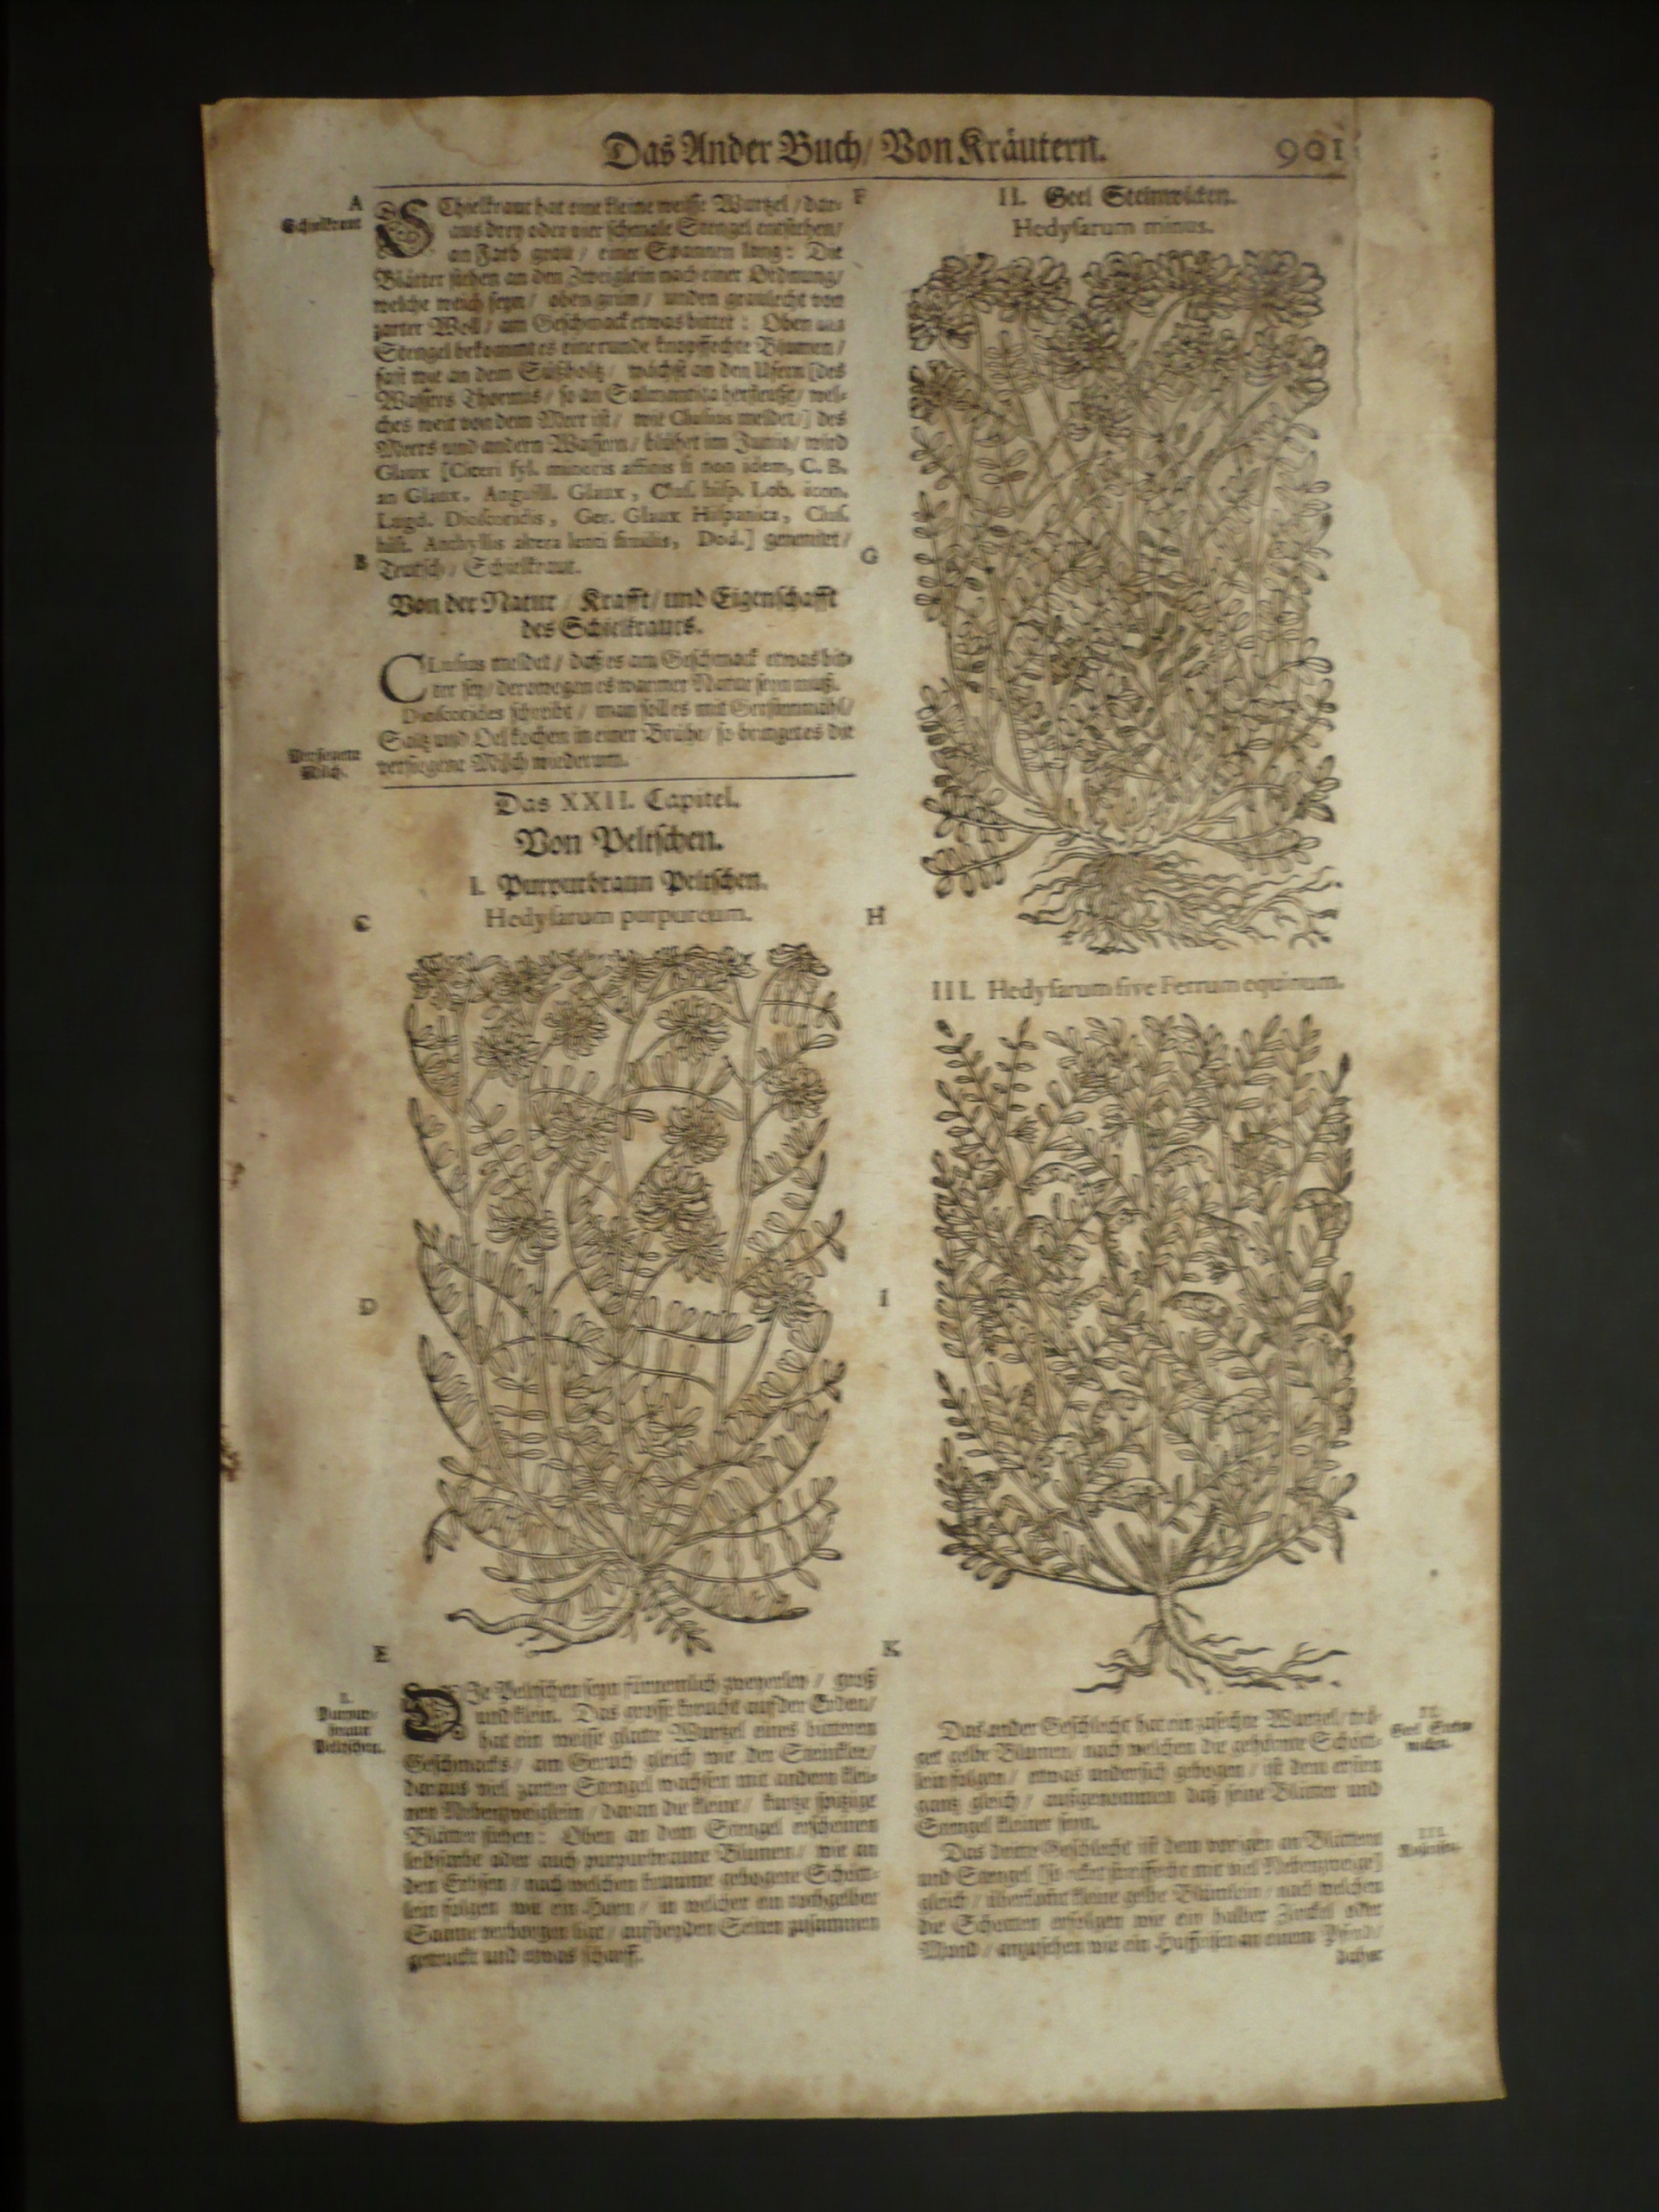 Das Ander Buch/ Von Kräutern. 901
A
Schielkraut
SChielkraut hat eine kleine weisse Wurtzel / dar-
aus drey oder vier schmale Stengel entstehen/
an Farb grau / einer Spannen lang: Die
Blätter stehen an den Zweiglein nach einer Ordnung/
welche weich seyn / oben grün / unden graulecht von
zarter Woll / am Geschmack etwas bitter: Oben am
Stengel bekommt es eine runde knopffechte Blumen /
fast wie an dem Süßholtz / wächst an den Ufern [des
Wassers Thormis / so an Salmantica herfleußt / wel-
ches weit von dem Meer ist / wie Clusius meldet /] des
Meers und andern Wassern / blühet im Junio / wird
Glaux [Ciceri syl. minoris affinis si non idem, C. B.
an Glaux. Anguill. Glaux, Clus. hisp. Lob. icon.
Lugd. Dioscoridis, Ger. Glaux Hispanica, Clus.
hist. Anthyllis altera lenti similis, Dod.] genennet /
B
Teutsch / Schielkraut.
Von der Natur / Krafft / und Eigenschafft
des Schielkrauts.
CLusius meldet / daß es am Geschmack etwas bit-
ter sey / derowegen es warmer Natur seyn muß.
Dioscorides schreibt / man soll es mit Gerstenmähl /
Saltz und Oel kochen in einer Brühe / so bringet es die
versiegene Milch wiederum.
Milch.
Das XXII. Capitel.
Von Peltschen.
I. Purpurbraun Peltschen.
Hedysarum purpureum.
C
D
E
I.
Purpur-
braun
Peltschen.
DIe Peltschen seyn fürnemlich zweyerley / groß
und klein. Das grosse kreucht auf der Erden /
hat ein weisse glatte Wurtzel eines bitteren
Geschmacks / am Geruch gleich wie der Steinklee /
daraus viel zarter Stengel wachsen mit andern klei-
nen Nebenzweiglein / daran die kleine / kurtze spitzige
Blätter stehen: Oben an dem Stengel erscheinen
leibfarbe oder auch purpurbraune Blumen / wie an
den Erbsen / nach welchen krumme gebogene Schött-
lein folgen wie ein Horn / in welcher ein rothgelber
Saame verborgen ligt / auf beyden Seiten zusammen
getruckt und etwas scharff.
F
II. Geel Steinwicken.
Hedysarum minus.
G
H
III. Hedysarum sive Ferrum equinum.
I
K
Das ander Geschlecht hat ein zasechte Wurtzel / trä-
get gelbe Blumen / nach welchen die gehörnte Schött-
lein folgen / etwas undersich gebogen / ist dem ersten
gantz gleich / außgenommen daß seine Blätter und
Stengel kleiner seyn.
II.
Geel Stein-
wicken.
Das dritte Geschlecht ist dem vorigen an Blättern
und Stengel [so mit viel Nebenzweige]
gleich / überkomt kleine gelbe Blümlein / nach welchen
die Schotten erfolgen wie ein halber Zirckel oder
Mond / anzusehen wie ein Huffeisen an einem Pferd /
daher
III.